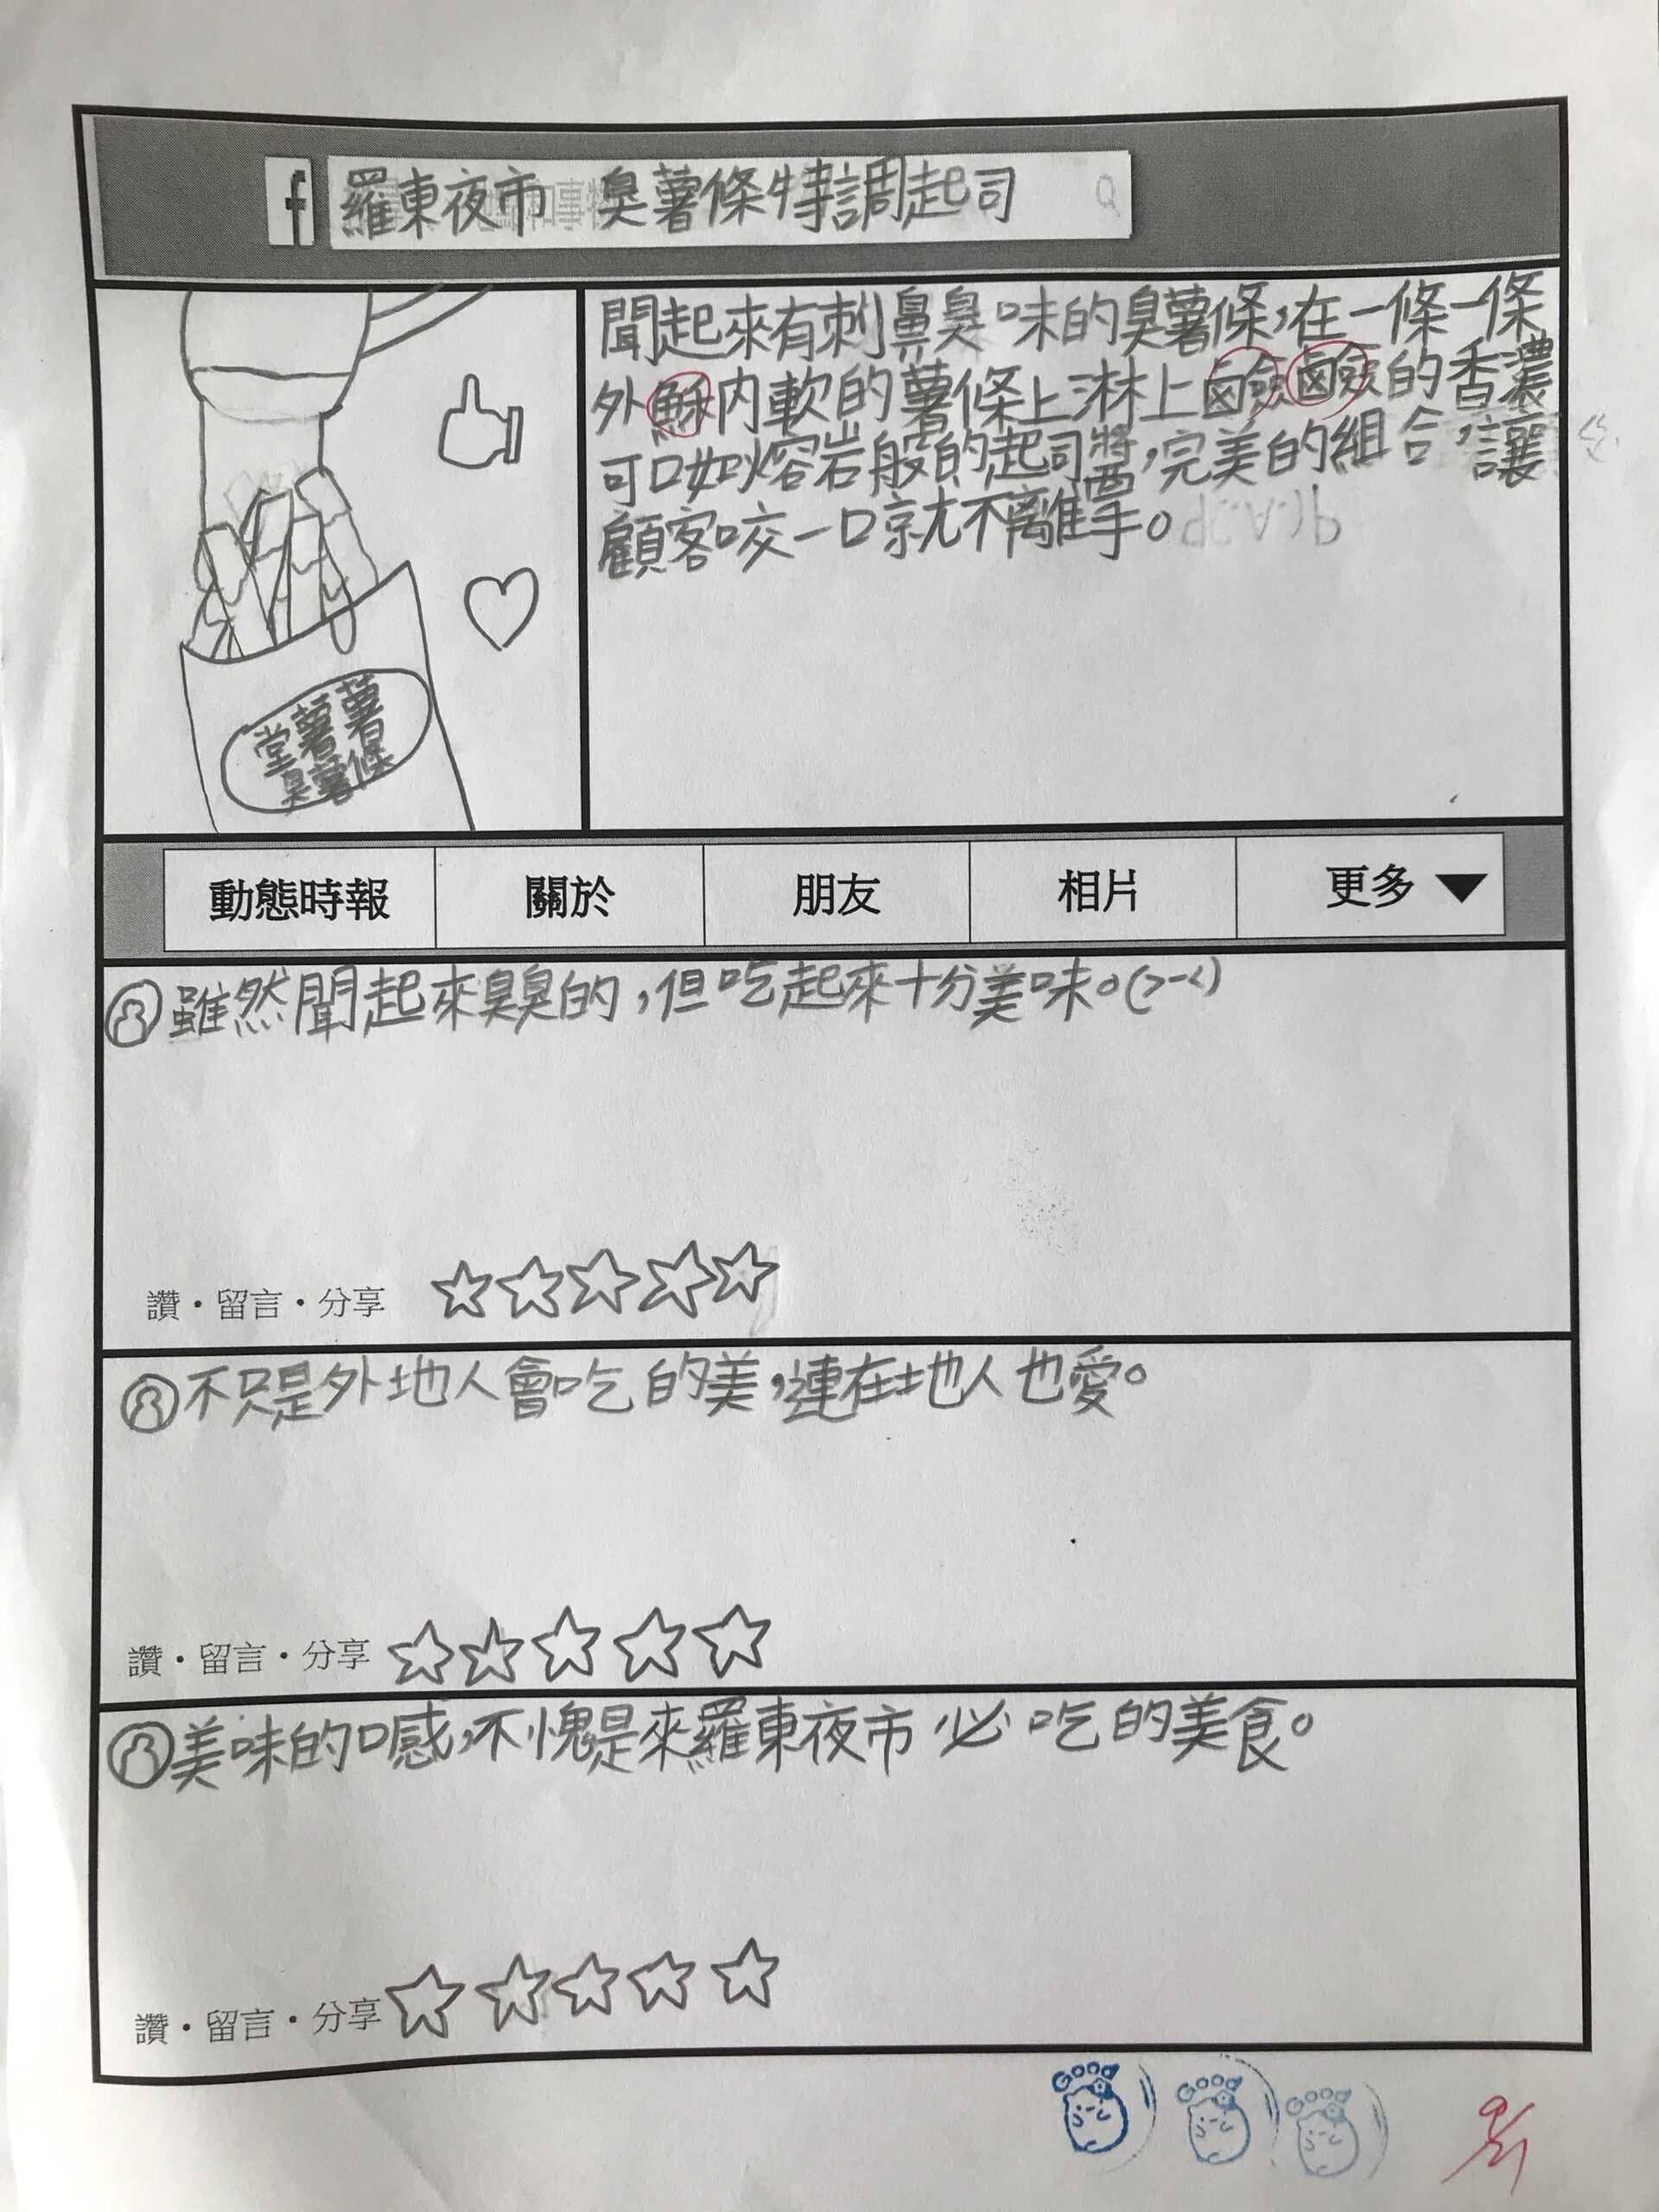 f 羅東夜市 臭薯條特調起司
聞起來有刺鼻臭味的臭薯條,在一條一條
外穌內軟的薯條上淋上鹼鹼的香濃
可口如熔岩般的起司醬,完美的組合,讓
顧客咬一口就不離手。
堂薯薯
臭薯條
動態時報 關於 朋友 相片 更多 ▼
雖然聞起來臭臭的,但吃起來十分美味。(>-<)
讚・留言・分享
不只是外地人會吃的美,連在地人也愛。
讚・留言・分享
美味的口感,不愧是來羅東夜市必吃的美食。
讚・留言・分享
GOOD GOOD GOOD